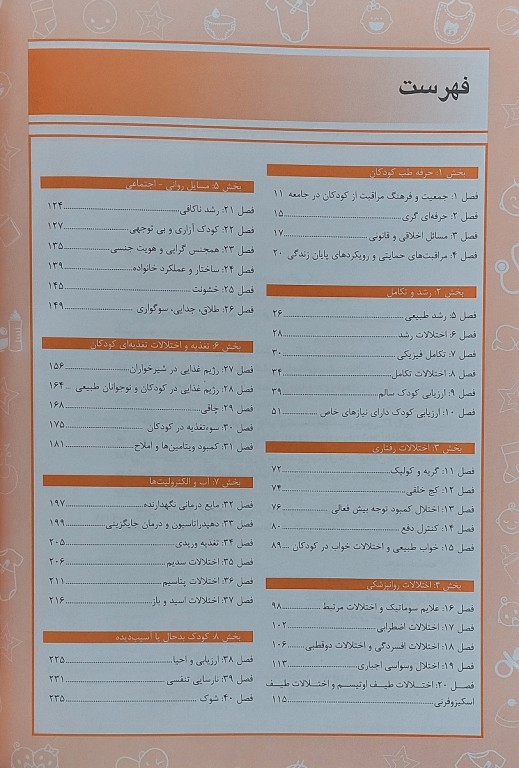 فهرست
بخش ۱: حرفه طب کودکان
فصل ۱: جمعیت و فرهنگ مراقبت از کودکان در جامعه ۱۱
فصل ۲: حرفه‌ای گری ۱۵
فصل ۳: مسائل اخلاقی و قانونی ۱۷
فصل ۴: مراقبت‌های حمایتی و رویکردهای پایان زندگی ۲۰
بخش ۲: رشد و تکامل
فصل ۵: رشد طبیعی ۲۶
فصل ۶: اختلالات رشد ۲۸
فصل ۷: تکامل فیزیکی ۳۰
فصل ۸: اختلالات تکامل ۳۴
فصل ۹: ارزیابی کودک سالم ۳۹
فصل ۱۰: ارزیابی کودک دارای نیازهای خاص ۵۱
بخش ۳: اختلالات رفتاری
فصل ۱۱: گریه و کولیک ۷۲
فصل ۱۲: کج خلقی ۷۴
فصل ۱۳: اختلال کمبود توجه بیش فعالی ۷۶
فصل ۱۴: کنترل دفع ۸۰
فصل ۱۵: خواب طبیعی و اختلالات خواب در کودکان ۸۹
بخش ۴: اختلالات روانپزشکی
فصل ۱۶: علایم سوماتیک و اختلالات مرتبط ۹۸
فصل ۱۷: اختلالات اضطرابی ۱۰۲
فصل ۱۸: اختلالات افسردگی و اختلالات دوقطبی ۱۰۶
فصل ۱۹: اختلال وسواسی اجباری ۱۱۳
فصل ۲۰: اختلالات طیف اوتیسم و اختلالات طیف
اسکیزوفرنی ۱۱۵
بخش ۵: مسایل روانی - اجتماعی
فصل ۲۱: رشد ناکافی ۱۲۴
فصل ۲۲: کودک آزاری و بی توجهی ۱۲۷
فصل ۲۳: همجنس گرایی و هویت جنسی ۱۳۵
فصل ۲۴: ساختار و عملکرد خانواده ۱۳۹
فصل ۲۵: خشونت ۱۴۵
فصل ۲۶: طلاق، جدایی، سوگواری ۱۴۹
بخش ۶: تغذیه و اختلالات تغذیه‌ای کودکان
فصل ۲۷: رژیم غذایی در شیرخواران ۱۵۶
فصل ۲۸: رژیم غذایی در کودکان و نوجوانان طبیعی ۱۶۴
فصل ۲۹: چاقی ۱۶۸
فصل ۳۰: سوءتغذیه در کودکان ۱۷۵
فصل ۳۱: کمبود ویتامین‌ها و املاح ۱۸۱
بخش ۷: آب و الکترولیت‌ها
فصل ۳۲: مایع درمانی نگهدارنده ۱۹۷
فصل ۳۳: دهیدراتاسیون و درمان جایگزینی ۱۹۹
فصل ۳۴: تغذیه وریدی ۲۰۵
فصل ۳۵: اختلالات سدیم ۲۰۶
فصل ۳۶: اختلالات پتاسیم ۲۱۱
فصل ۳۷: اختلالات اسید و باز ۲۱۶
بخش ۸: کودک بدحال یا آسیب‌دیده
فصل ۳۸: ارزیابی و احیا ۲۲۵
فصل ۳۹: نارسایی تنفسی ۲۳۱
فصل ۴۰: شوک ۲۳۵